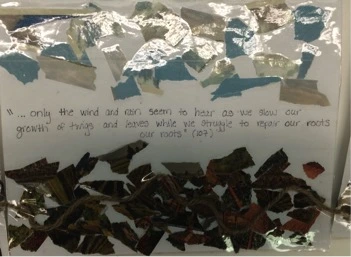 "... only the wind and rain seem to hear as we slow our
growth of twigs and leaves while we struggle to repair our roots
our roots" (107)